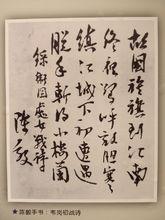 故国旌旗到江南
终夜惊呼敌胆寒
镇江城下初遭遇
脱手斩得小楼兰
卫岗处女战诗
陈毅
★陈毅手书：韦岗初战诗